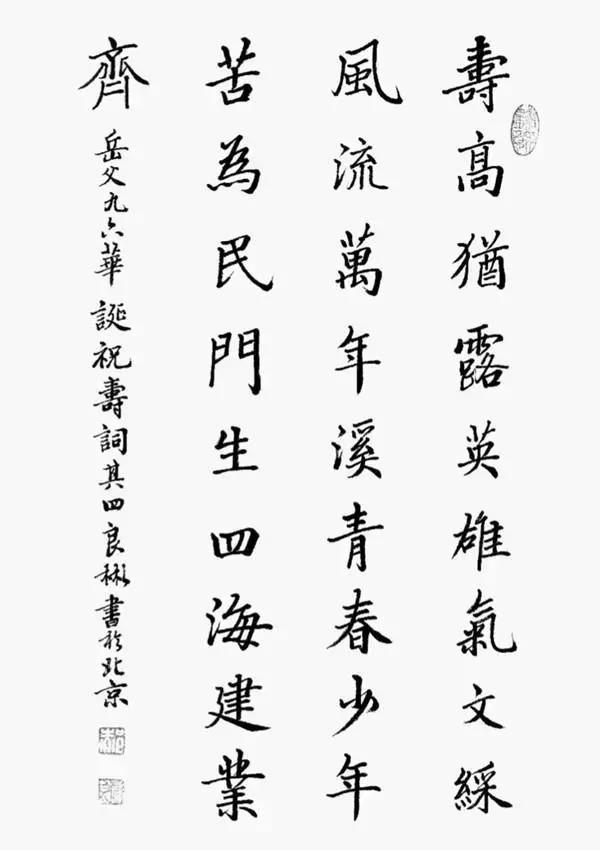 壽高猶露英雄氣文綵
風流萬年溪青春少年
苦為民門生四海建業
齊
岳父九六華誕祝壽詞其四良彬書於北京